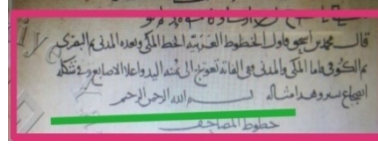 قال محمد بن اسحق فاول الخطوط العربية الخط المكي وبعده المدني ثم البصري
ثم الكوفي فاما المكي والمدني ففي الفاته تعويج الى يمنة اليد واعلا الاصابع وفي شكله
انضجاع يسير وهذا مثاله بسم الله الرحمن الرحيم
خطوط المصاحف